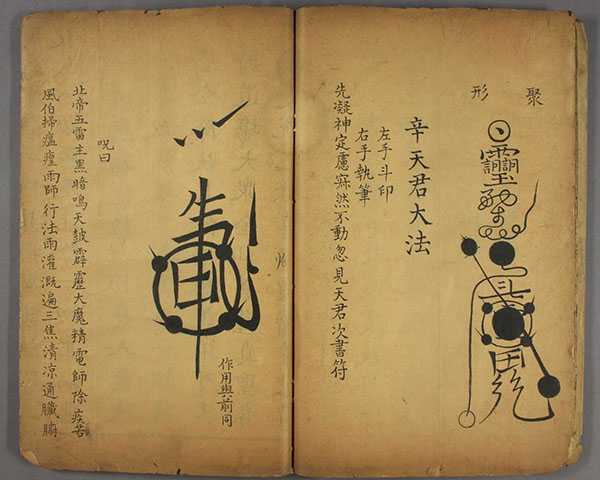 聚形
辛天君大法
左手斗印
右手執筆
先凝神定慮寂然不動忽見天君次書符
作用與前同
咒曰
北帝五雷主黑暗鳴天皷霹靂大魔精電師除疾苦
風伯掃瘟㾮雨師行法雨灌溉遍三焦清凉通臟腑